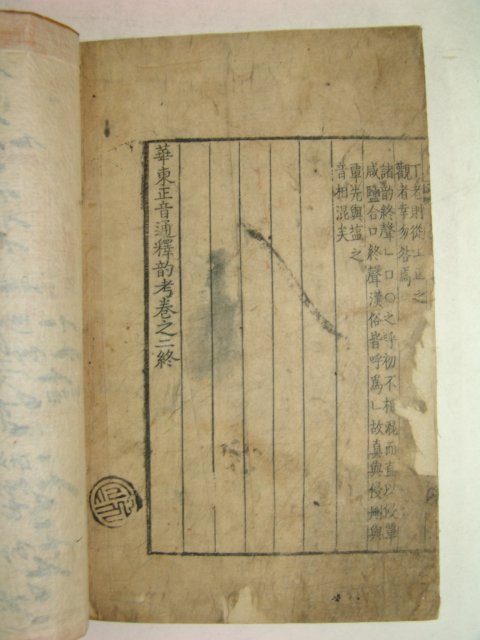 丁老則從上正之
觀者幸勿咎焉
諸韵終聲ㄴㅁㅇ之呼初不相混而直以侵覃
咸鹽合口終聲漢俗皆呼爲ㄴ故眞與侵刪與
覃先與塩之
音相混矣
華東正音通釋韵考卷之二終